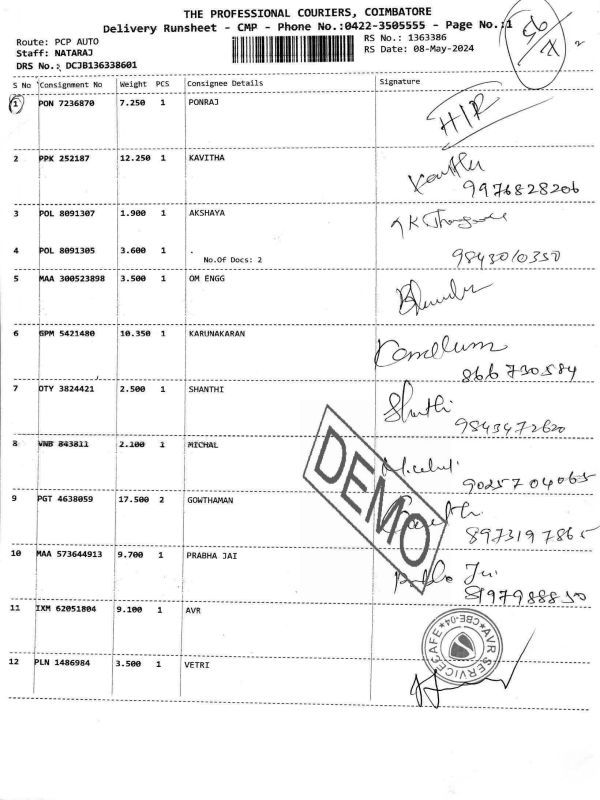 THE PROFESSIONAL COURIERS, COIMBATORE
Delivery Runsheet - CMP - Phone No.:0422-3505555 - Page No.:1
Route: PCP AUTO
Staff: NATARAJ
DRS No.: DCJB136338601
RS No.: 1363386
RS Date: 08-May-2024
S No Consignment No Weight PCS Consignee Details Signature
1 PON 7236870 7.250 1 PONRAJ
2 PPK 252187 12.250 1 KAVITHA
9976828206
3 POL 8091307 1.900 1 AKSHAYA
4 POL 8091305 3.600 1 .
No.Of Docs: 2
9843010350
5 MAA 300523898 3.500 1 OM ENGG
6 GPM 5421480 10.350 1 KARUNAKARAN
866 730584
7 OTY 3824421 2.500 1 SHANTHI Shanthi
9843472620
8 VNB 843811 2.100 1 MICHAL
9025704065
9 PGT 4638059 17.500 2 GOWTHAMAN
8973197865
10 MAA 573644913 9.700 1 PRABHA JAI
8197988850
11 IXM 62051804 9.100 1 AVR
AVR SERVICE CAFE CBE-04
12 PLN 1486984 3.500 1 VETRI
DEMO